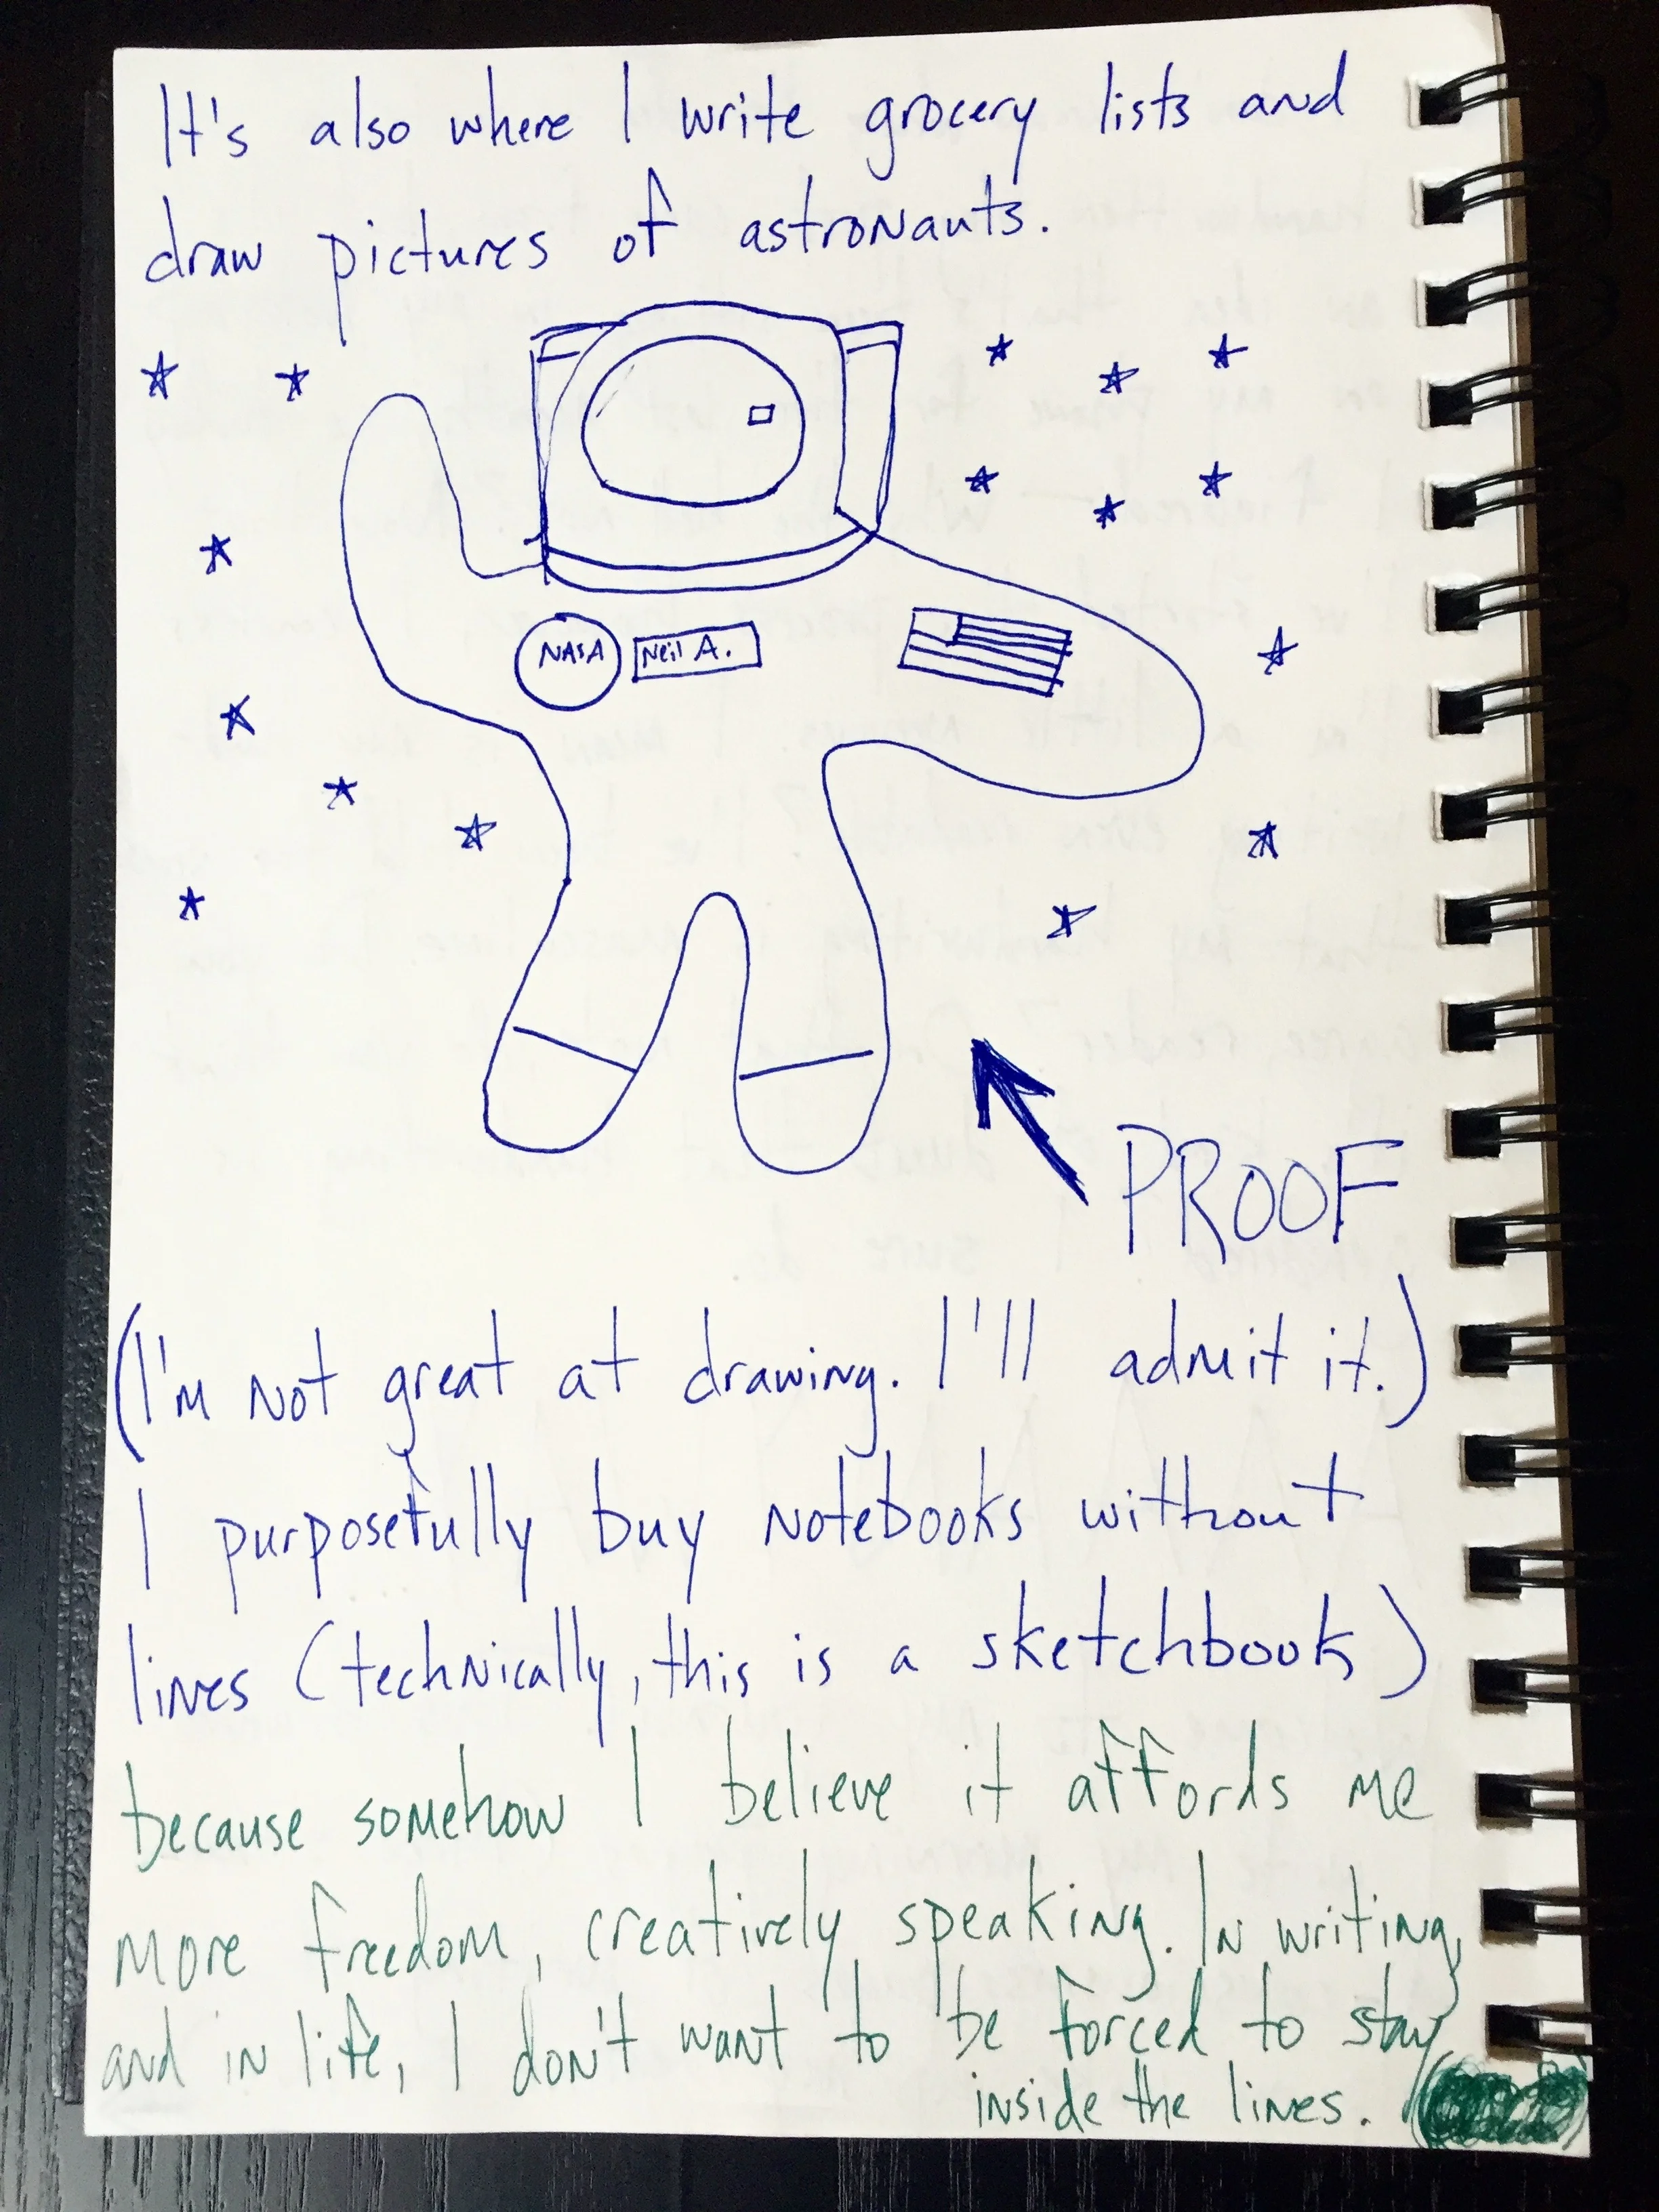 It's also where I write grocery lists and
draw pictures of astronauts.
NASA
Neil A.
PROOF
(I'm not great at drawing. I'll admit it.)
I purposefully buy notebooks without
lines (technically, this is a sketchbook)
because somehow I believe it affords me
more freedom, creatively speaking. In writing,
and in life, I don't want to be forced to stay
inside the lines.